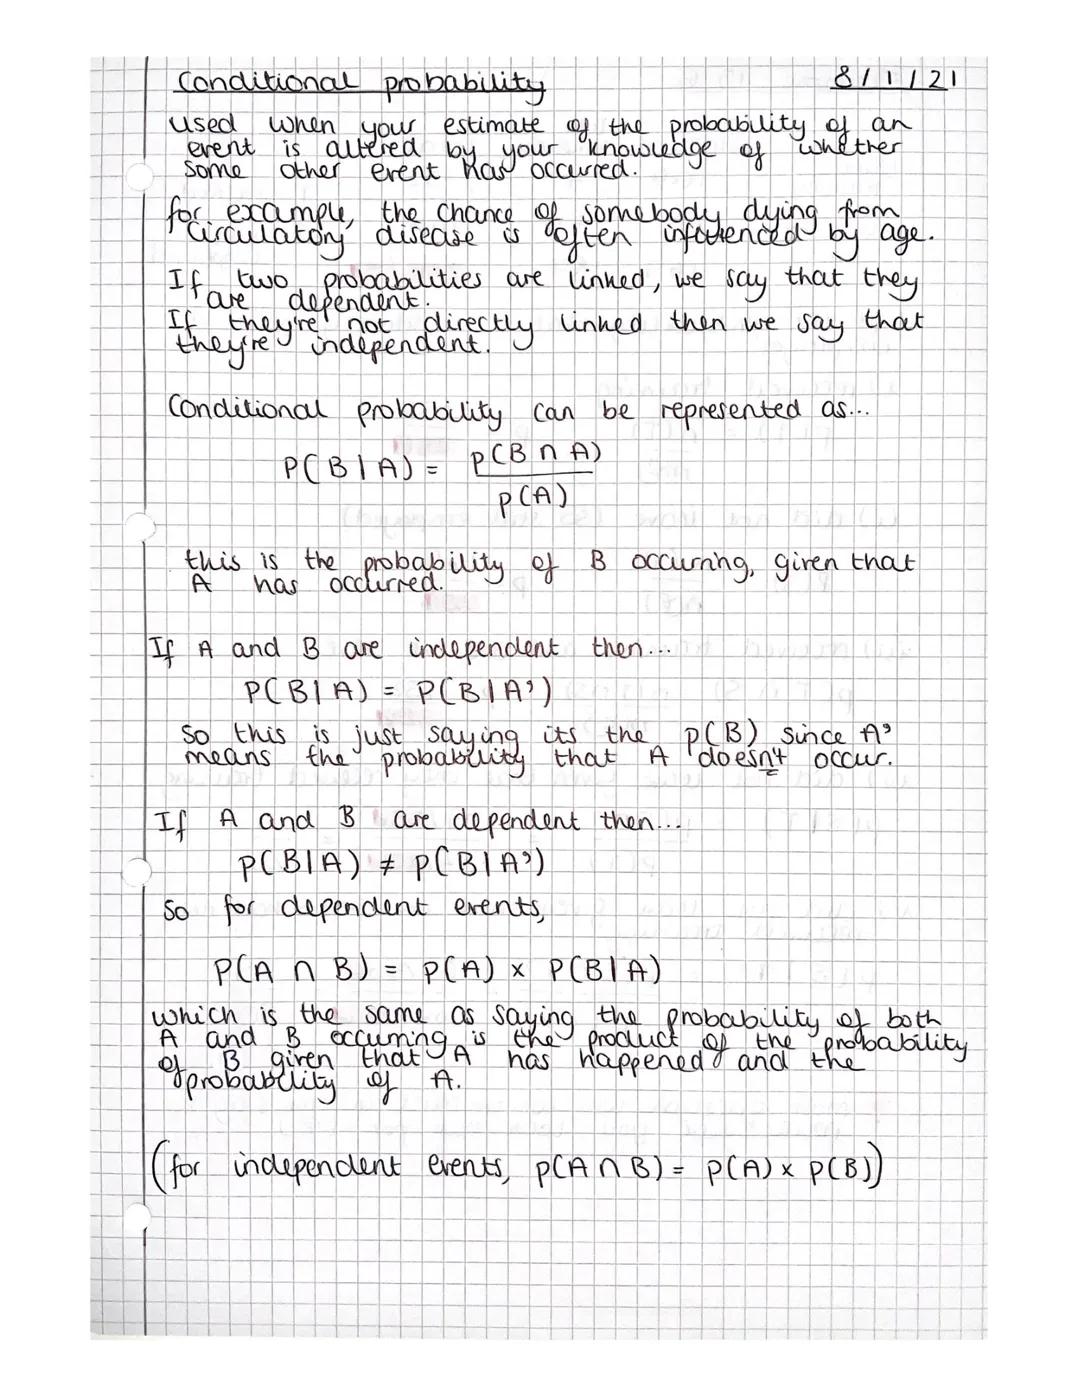 Conditional probability 8/1/21
used when your estimate of the probability of an
event is altered by your knowledge of whether
some other event has occurred.
for example, the chance of somebody dying from
circulatory disease is often infouenced by age.
If two probabilities are linked, we say that they
are dependent.
If they're not directly linked then we say that
they're independent.
Conditional probability can be represented as...
P(B|A) = p(B ∩ A)
p(A)
this is the probability of B occurring, given that
A has occurred.
If A and B are independent then...
P(B|A) = P(B|A')
so this is just saying its the p(B) since A'
means the probability that A doesn't occur.
If A and B are dependent then...
P(B|A) ≠ p(B|A')
So for dependent events,
P(A ∩ B) = p(A) × P(B|A)
which is the same as saying the probability of both
A and B occurring is the product of the probability
of B given that A has happened and the
probability of A.
(for independent events, p(A ∩ B) = p(A) × p(B))